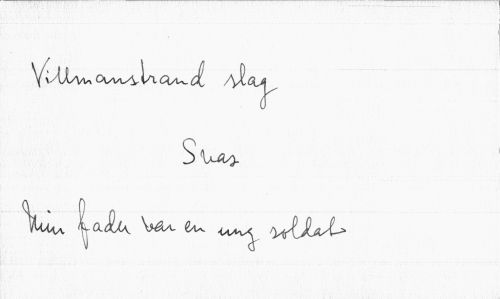 Villmanstrand slag
Svar
Min fader var en ung soldat